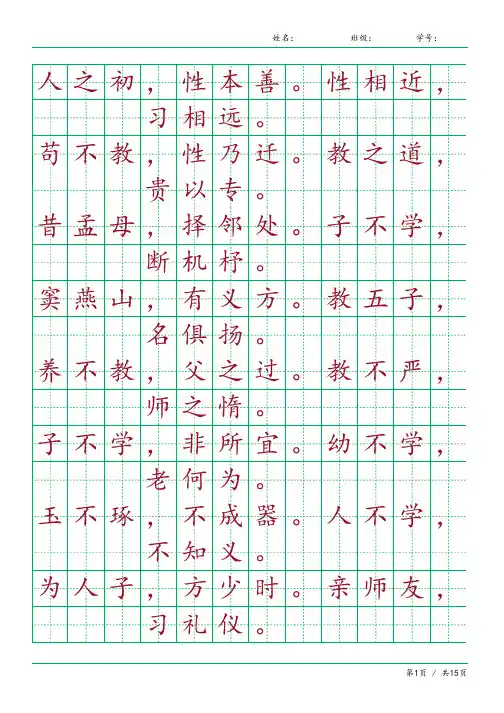 姓名： 班级： 学号：
人之初，性本善。性相近，
习相远。
苟不教，性乃迁。教之道，
贵以专。
昔孟母，择邻处。子不学，
断机杼。
窦燕山，有义方。教五子，
名俱扬。
养不教，父之过。教不严，
师之惰。
子不学，非所宜。幼不学，
老何为。
玉不琢，不成器。人不学，
不知义。
为人子，方少时。亲师友，
习礼仪。
第1页 / 共15页